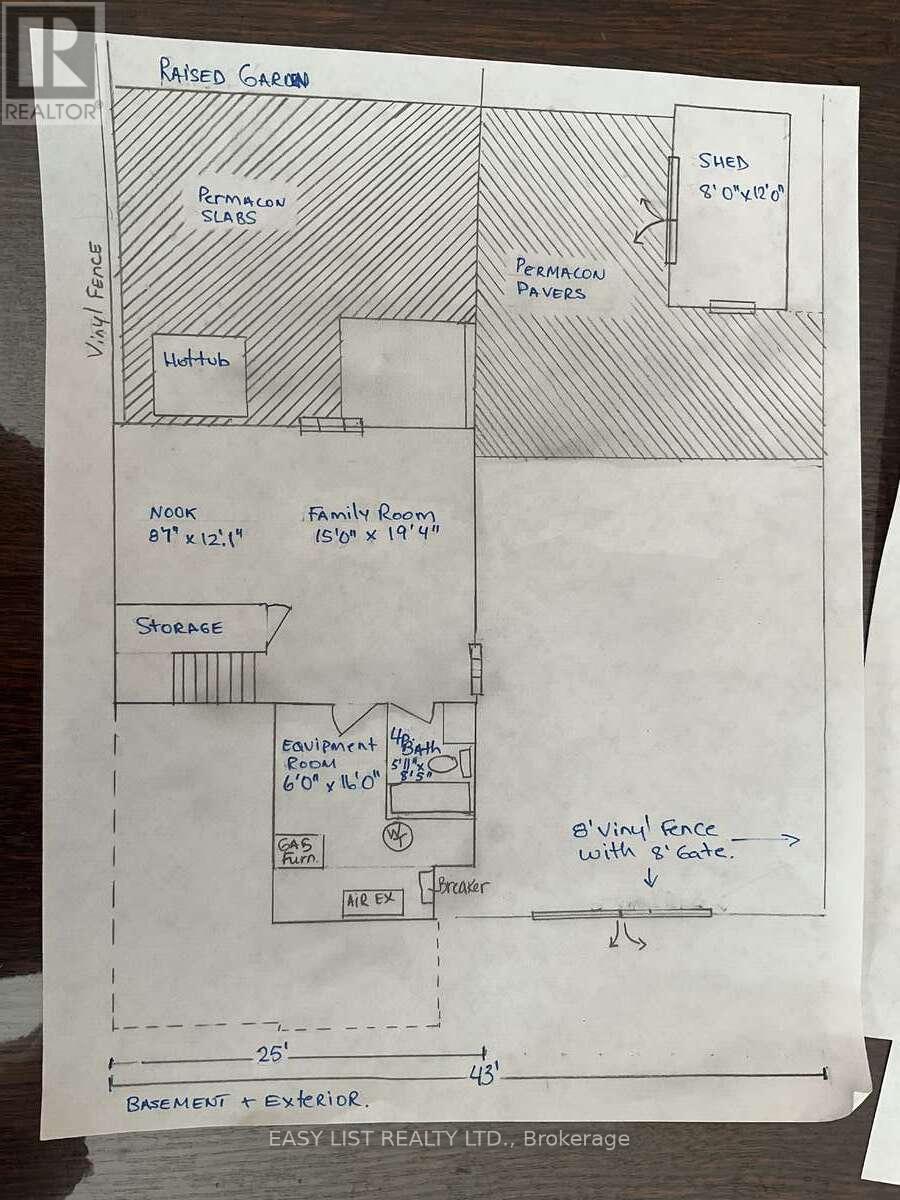 REALTOR®
RAISED GARDEN
PERMACON
SLABS
SHED
8'0" x 12'0"
PERMACON
PAVERS
Vinyl FENCE
Hottub
NOOK
8'7" x 12'.1"
FAMily Room
15'0" x 19'4"
STORAGE
EQUIPMENT
ROOM
6'0" x 16'0"
4p.
BAth
5'11" x
8'5"
WT
GAS
Furn.
AIR EX
Breaker
8' Vinyl FENCE
with 8' Gate.
25'
43'
BASEMENT + EXterioR.
EASY LIST REALTY LTD., Brokerage